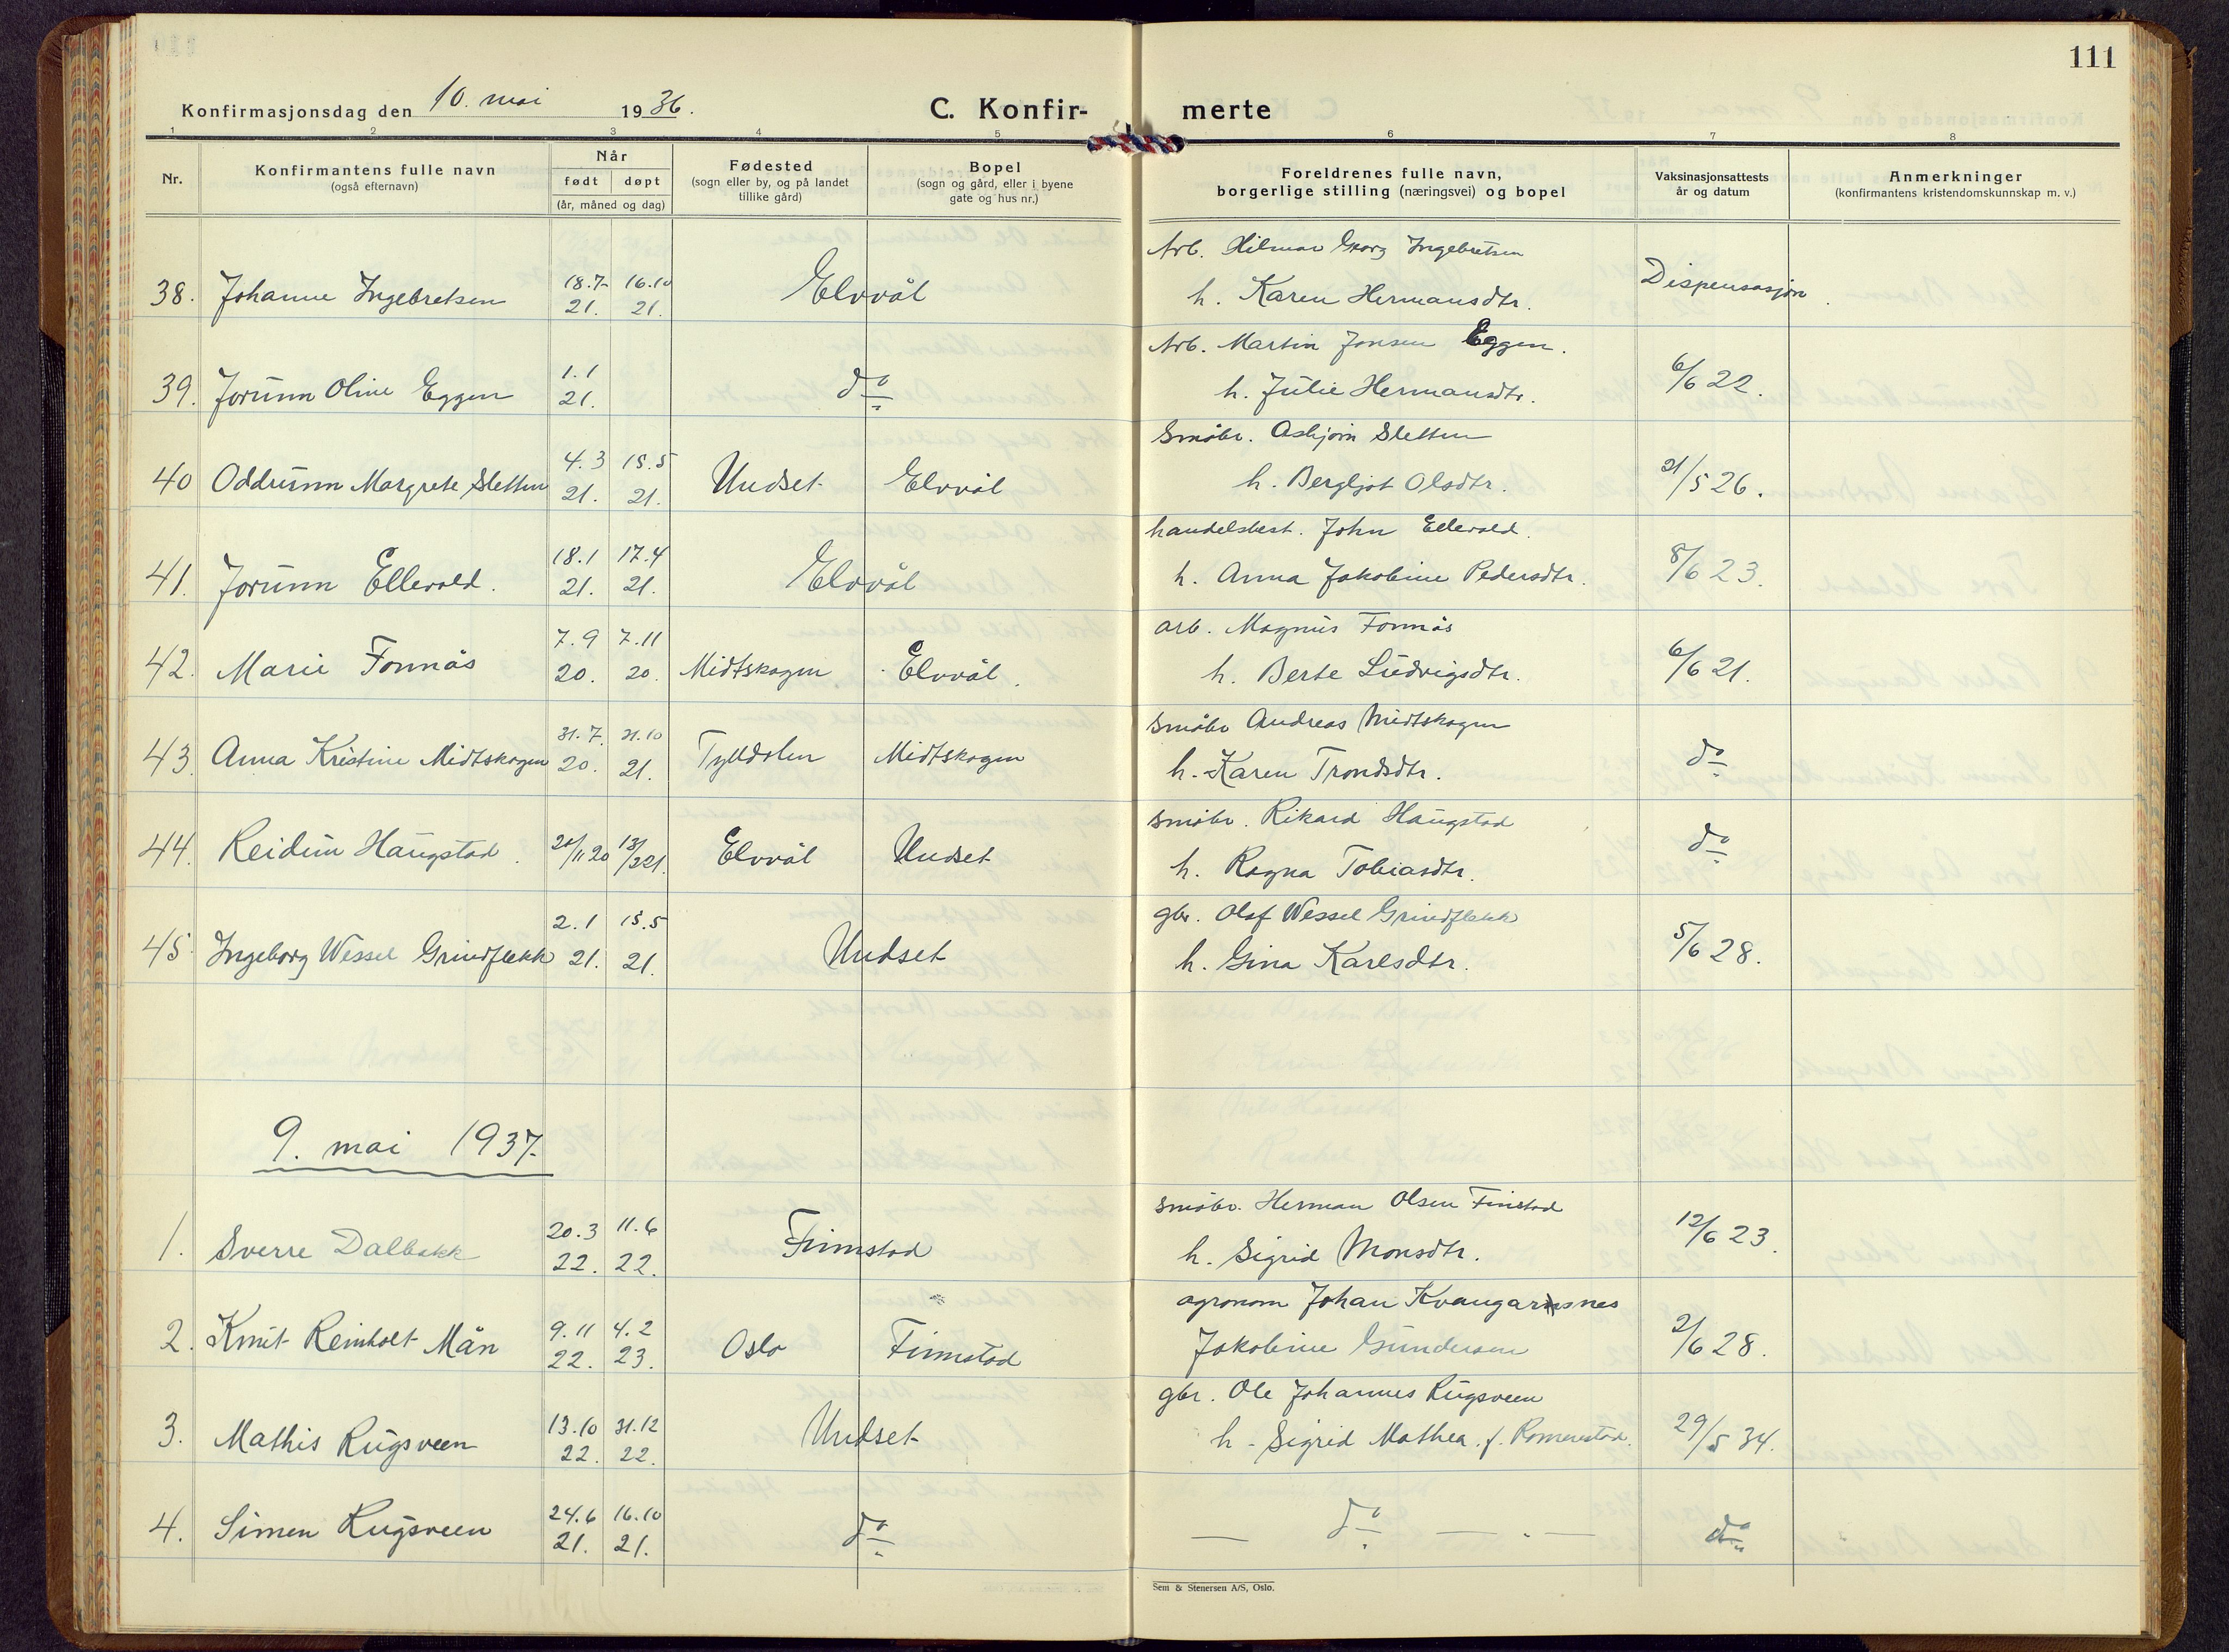 111
Konfirmasjonsdag den 10. mai 1936. C. Konfir- merte
1 2 3 4 5 6 7 8
Nr. Konfirmantens fulle navn (også efternavn) Når født døpt (år, måned og dag) Fødested (sogn eller by, og på landet tillike gård) Bopel (sogn og gård, eller i byene gate og hus nr.) Foreldrenes fulle navn, borgerlige stilling (næringsvei) og bopel Vaksinasjonsattests år og datum Anmerkninger (konfirmantens kristendomskunnskap m. v.)
Arb. Hilmar Georg Ingebretsen
38. Johanne Ingebretsen 18.7 21. 16.10 21. Elvvål h. Karen Hermansdtr. Dispensasjon.
Arb. Martin Jonsen Eggen.
39. Jorunn Oline Eggen 1.1 21. do h. Julie Hermansdtr. 6/6 22.
Småbr. Asbjørn Sletten
40 Oddrunn Margrete Sletten 4.3 21. 15.5 21. Undset Elvvål h. Bergljot Olsdtr. 21/5 26.
handelsbest. John Ellevold.
41. Jorunn Ellevold. 18.1 21. 17.4 21. Elvvål h. Anna Jakobine Pedersdtr. 8/6 23.
arb. Magnus Fonnås
42. Marie Fonnås 7.9 20. 7.11 20. Midtskogen Elvvål. h. Berte Ludvigsdtr. 6/6 21.
småbr Andreas Midtskogen
43. Anna Kristine Midtskogen 31.7. 20. 21.10 21. Tylldalen Midtskogen h. Karen Trondsdtr. do
småbr. Rikard Haugstad
44. Reidun Haugstad. 20/11 20 13/2 21. Elvvål Undset h. Ragna Tobiasdtr. do
gbr. Olaf Wessel Grindflekk
45 Ingeborg Wessel Grindflekk 2.1 21. 15.5 21. Undset h. Gina Karlsdtr. 5/6 28.
9. mai 1937.
småbr. Herman Olsen Finstad
1. Sverre Dalbakk 20.3 22. 11.6 22. Finnstad h. Sigrid Monsdtr. 12/6 23.
agronom Johan Kvangarsnes
2. Knut Reinholt Mån 9.11 22. 4.2 23. Oslo Finnstad Jakobine Gundersen 2/6 28.
gbr. Ole Johannes Rugsveen
3. Mathis Rugsveen 13.10 22. 31.12 22. Undset h. Sigrid Mathea f. Romenstad. 29/5 34.
4. Simen Rugsveen 24.6 21. 16.10 21. do — do — . — do
Sem & Stenersen A/S, Oslo.